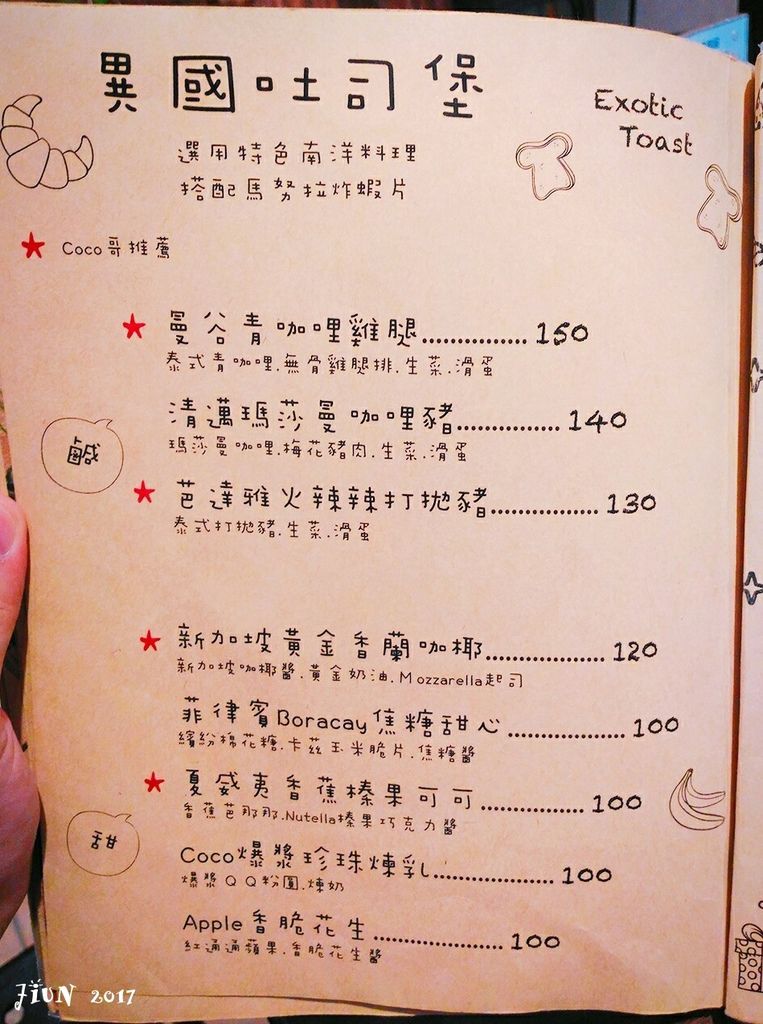 異國吐司堡
Exotic
Toast
選用特色南洋料理
搭配馬努拉炸蝦片
Coco哥推薦
曼谷青咖哩雞腿................ 150
泰式青咖哩.無骨雞腿排.生菜.滑蛋
清邁瑪莎曼咖哩豬................ 140
瑪莎曼咖哩.梅花豬肉.生菜.滑蛋
鹹
芭達雅火辣辣打拋豬................ 130
泰式打拋豬.生菜.滑蛋
新加坡黃金香蘭咖椰.................. 120
新加坡咖椰醬.黃金奶油.Mozzarella起司
菲律賓Boracay焦糖甜心.................. 100
繽紛棉花糖.卡茲玉米脆片.焦糖醬
夏威夷香蕉榛果可可.................. 100
香蕉芭那那.Nutella榛果巧克力醬
甜
Coco爆漿珍珠煉乳.................. 100
爆漿QQ粉圓.煉奶
Apple香脆花生.................... 100
紅通通蘋果.香脆花生醬
JIUN 2017